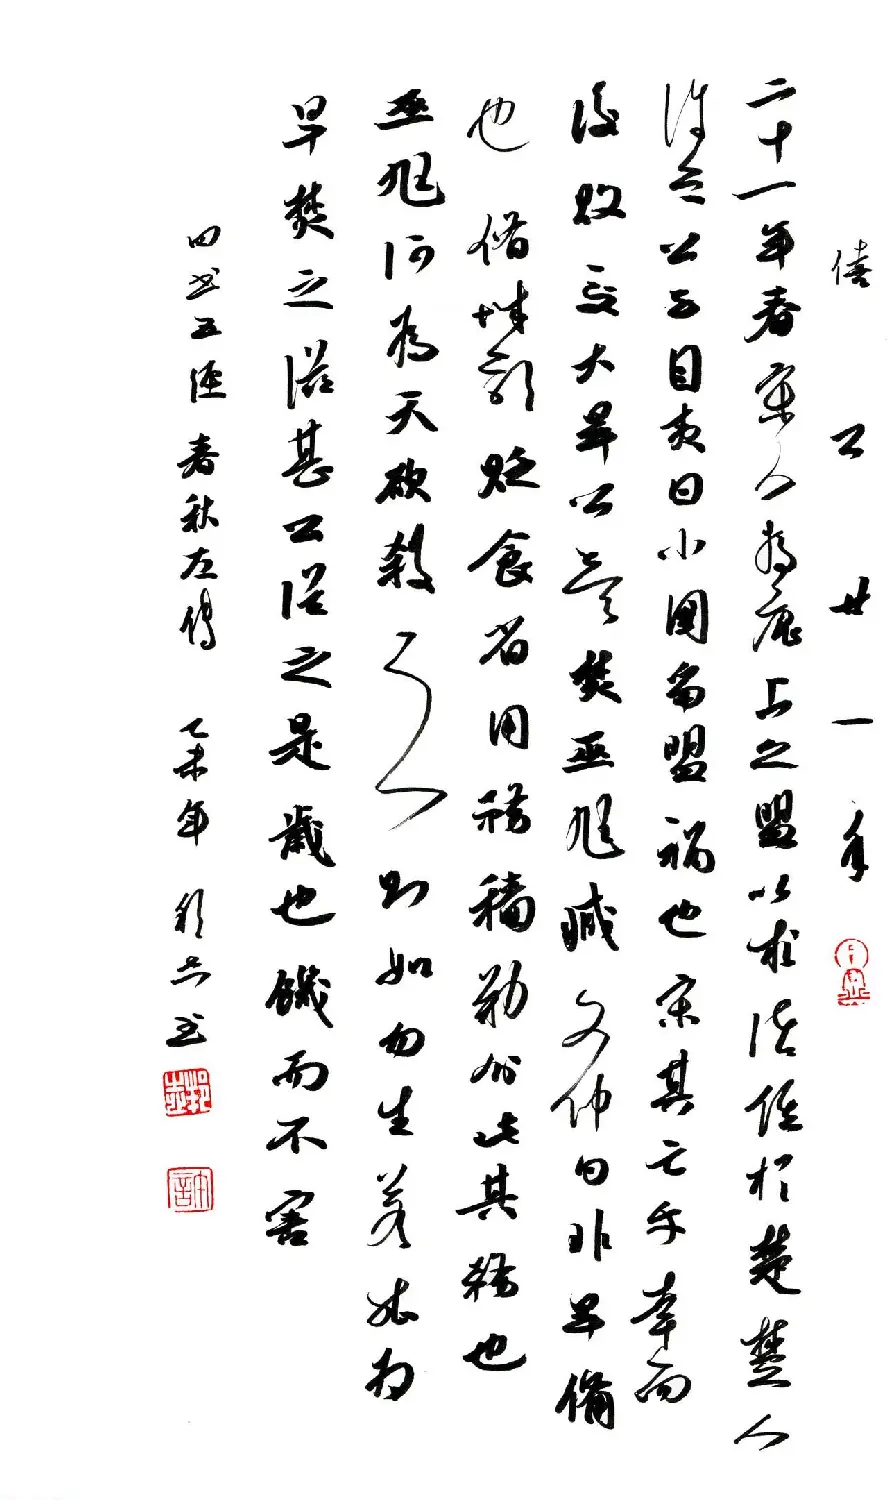 僖公廿一年
二十一年春宋人為鹿上之盟以求諸侯於楚楚人
許之公子目夷曰小國爭盟禍也宋其亡乎幸而
後敗夏大旱公欲焚巫尪臧文仲曰非旱備
也脩城郭貶食省用務穡勸分此其務也
巫尪何為天欲殺之則如勿生若能為
旱焚之滋甚公從之是歲也饑而不害
四書五經春秋左傳 乙未年 書